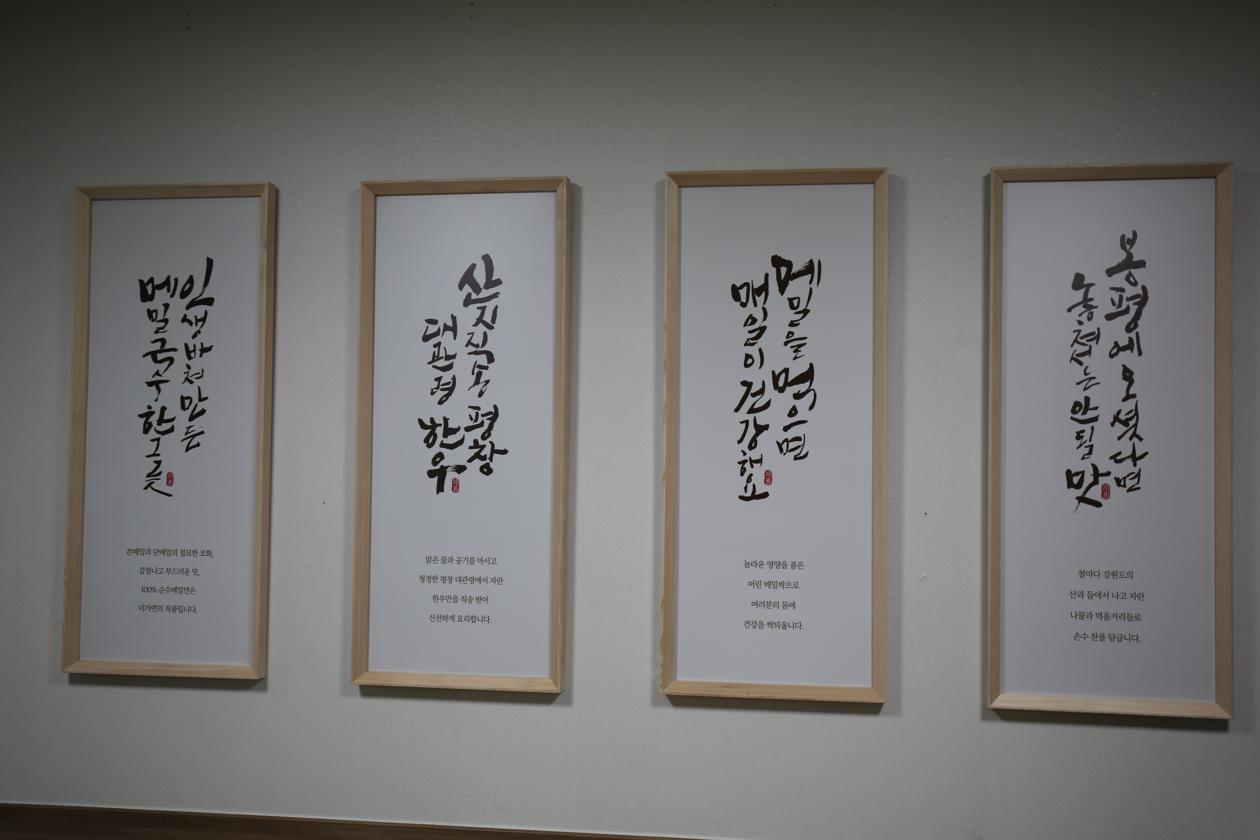 인생바쳐만든
메밀국수한그릇
쓴메밀과 단메밀의 절묘한 조화,
감칠나고 부드러운 맛,
100% 순수메밀면은
미가연의 작품입니다.
산지직송 평창
대관령 한우
맑은 물과 공기를 마시고
청정한 평창 대관령에서 자란
한우만을 직송 받아
신선하게 요리합니다.
메밀을 먹으면
매일이 건강해요
놀라운 영양을 품은
어린 메밀싹으로
여러분의 몸에
건강을 싹틔웁니다.
봉평에 오셨다면
놓쳐서는 안될 맛
철마다 강원도의
산과 들에서 나고 자란
나물과 먹을거리들로
손수 찬을 담급니다.